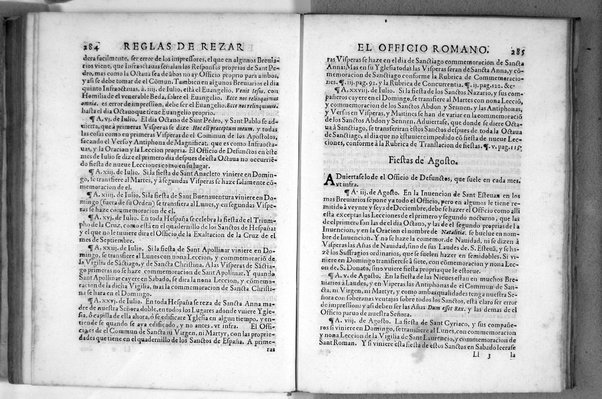 284 REGLAS DE REZAR
dera facilmente, ser error de los impressores, el que en algunos Brevia-
rios viene, que Infraoctauas señalan los Responsos proprios de Sant Pe-
dro, mas como la Octaua sea de Apostoles no ay Officio proprio para ambos,
y assi se deue tomar de el Comun. Tambien en algunos Breuiarios el dia
quinto Infraoctauas, à iiij. de Julio, està el Euangelio. Venit Iesus, con
Homilia de el venerable Beda, sobre el Euangelio. Ecce nos reliquimus
omnia. es error de impression, deue ser el Euangelio. Ecce nos reliquimus,
hasta el dia Octauo que tiene Euangelio proprio.
¶ A. vj. de Iulio. El dia Octauo de Sant Pedro, y Sant Pablo se ad-
uierta, que à primeras Visperas se dize. Hoc est præceptum meum. y todas
las cosas que à primeras Visperas como en el Commun de los Apostoles,
saccando el Verso y Antiphona de Magnificat. que es como Infraocta-
uas, y la Oracion y la propria. El Officio de Defunctos en este
mes de Iulio se dize el primero dia despues de esta Octaua no occurrié-
do fiesta de nueue Lecciones, como en su lugar.
¶ A. xiij. de Iulio. Si la fiesta de Sant Anacleto viniere en Domin-
go, se transfiere al Martes, y à segundas Visperas se haze solamente cõ-
memoracion de el.
¶ A. xiiij. de Iulio. Si la fiesta de Sant Buenauentura viniere en Do-
mingo (fuera de su Orden) se transfiera al Lunes, y en segundas Vispe-
ras se haze commemoracion de el.
¶ A. xvj. de Iulio. En toda Hespaña se celebra la fiesta de el Trium-
pho de la Cruz, como està en el quadernillo de los Sanctos de Hespañay
y el que no le tuuiere dira el Officio de la Exaltation de la Cruz de el
mes de Septiembre.
¶ A. xxiij. de Iulio. Si la fiesta de Sant Apollinar viniere en Do-
mingo, se transfiere al Lunes con nona Leccion, y commemoracion de
la Vigilia de Sãctiago, y de Sancta Christina. A las Visperas de Sanctia-
go primeras no se haze commemoracion de Sant Apollinar. Y quando
Sant Apollinar cayere en Sabado, se dira la nona Leccion, y cõmemo-
racion de la dicha Vigilia, mas la commemoracion de Sancta Christi-
na se hara en Domingo.
¶ A. xxvj. de Iulio. En toda Hespaña se reza de Sancta Anna ma-
dre de nuestra Señora doble, en todos los Lugares adonde vuiere Ygle-
sia, ò capilla de ella ahora, ò se edificare Yglesia en algun tiempo, y en-
tiende se quando se aya edificado, y no antes vt infra. El Offi-
cio es de el Commun de Sancta ni Virgen, ni Martyr, con las proprie-
dades que tiene en el quadernillo de los Sanctos de España. A prime-
ras
EL OFFICIO ROMANO. 285
ras Visperas se haze en el dia de Sanctiago commemoracion de Sancta
Anna: Mas en su Yglesia todas las Visperas seran de Sancta Anna, y cõ-
memoracion de Sanctiago conforme la Rubrica de Commemoracion-
nes. ¶. 15. pag. 91. y la de Concurrentia. ¶. 15. pag. 122. &c.
¶ A. xxviij. de Iulio. Si la fiesta de los Sanctos Nazario, y sus com-
pañeros cayere en el Domingo, se transfiere al Martes con nona Lecció,
y commemoracion de los Sanctos Abdon y Sennen, y las Antiphonas,
y Versos en Visperas, y Maytines se han de variar en la commemoracion
de los Sanctos Abdon y Sennen. Aduierte se, que donde se diere Octa-
ua à Sanctiago, se transferiran estos Sanctos despues de toda la Octaua
de Sanctiago, al dia que no estuuiere impedido cõ fiesta de nueue Lec-
ciones, conforme à la Rubrica de Translacion de fiestas. ¶. v. pag. 115.
Fiestas de Agosto.
ADuierta se lo de el Officio de Defunctos, que suele en cada mes,
vt infra.
¶ A. iij. de Agosto. En la Inuencion de Sant Esteuan en los
mas Breuiarios se pone ya todo el Officio, pero en algunos se tiene re-
mitido à veynte y seys de Deziembre, deue se hazer el Officio como alli
està exceptas las Lecciones de el primero y segundo nocturno, que las
de el primero son las de el dia Octauo, y las de el segundo proprias de la
Inuencion, y en la Oracion el nombre de Natalitia. se buelue en nom-
bre de Inuencion. Y no se haze la cõmemor. de Nauidad, ni se dizen à
Visperas las Añas de Nauidad, sino de sus Laudes de S. Esteuã, y se ha-
ze los Suffragios ordinarios, que se suelen hazer en semidobles. Si vi-
niere en Domingo se transferirà à siete, con commemoracion y nona Lec-
cion de S. Donato, sino vuiere fiesta propria que lo estorue.
¶ A. v. de Agosto. En la fiesta de las Nieues estan en muchos Bre-
uiarios à Laudes, y en Visperas las Antiphonas de el Commun de San-
cta, ni Virgen, ni Martyr, y como ambas qualidades tenga nuestra Se-
ñora con soberanas ventajas sobre todos los Sanctos, està claro ser error
de impression: y assi deuen ser las Añas Dum esset Rex. y las demas de el
Officio paruo de nuestra Señora.
¶ A. viij. de Agosto. La fiesta de Sant Cyriaco, y sus compañe-
ros si viniere en Domingo, se transfiere al Lunes, con commemoracion
y nona Leccion de la Vigilia de Sant Laurencio, y commemoracion de
Sant Roman. Y si viniere esta fiesta de estos Sanctos en Sabado leerase
Ll 3 la